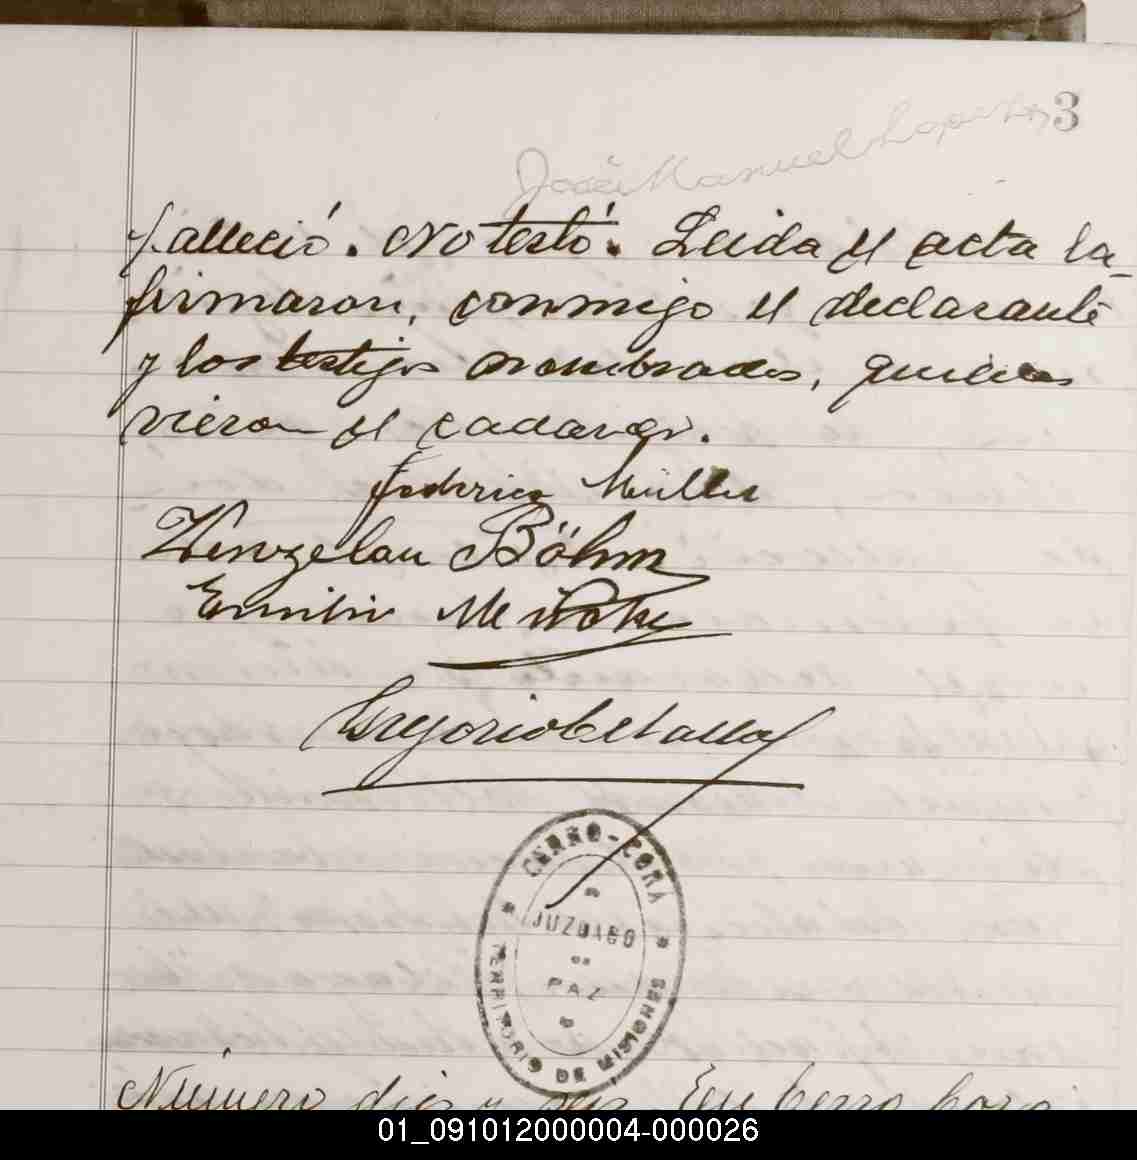 3
José Manuel Lopez
falleció. No testó. Leida el acta la
firmaron, conmigo el declarante
y los testigos nombrados, quienes
vieron el cadaver.
Federico Müller
Wenzelau Böhm
Emilio
Gregorio
CERRO-CORÁ
JUZGADO
DE
PAZ
TERRITORIO DE MISIONES
Número diez y seis En Cerro Corá
01_091012000004-000026